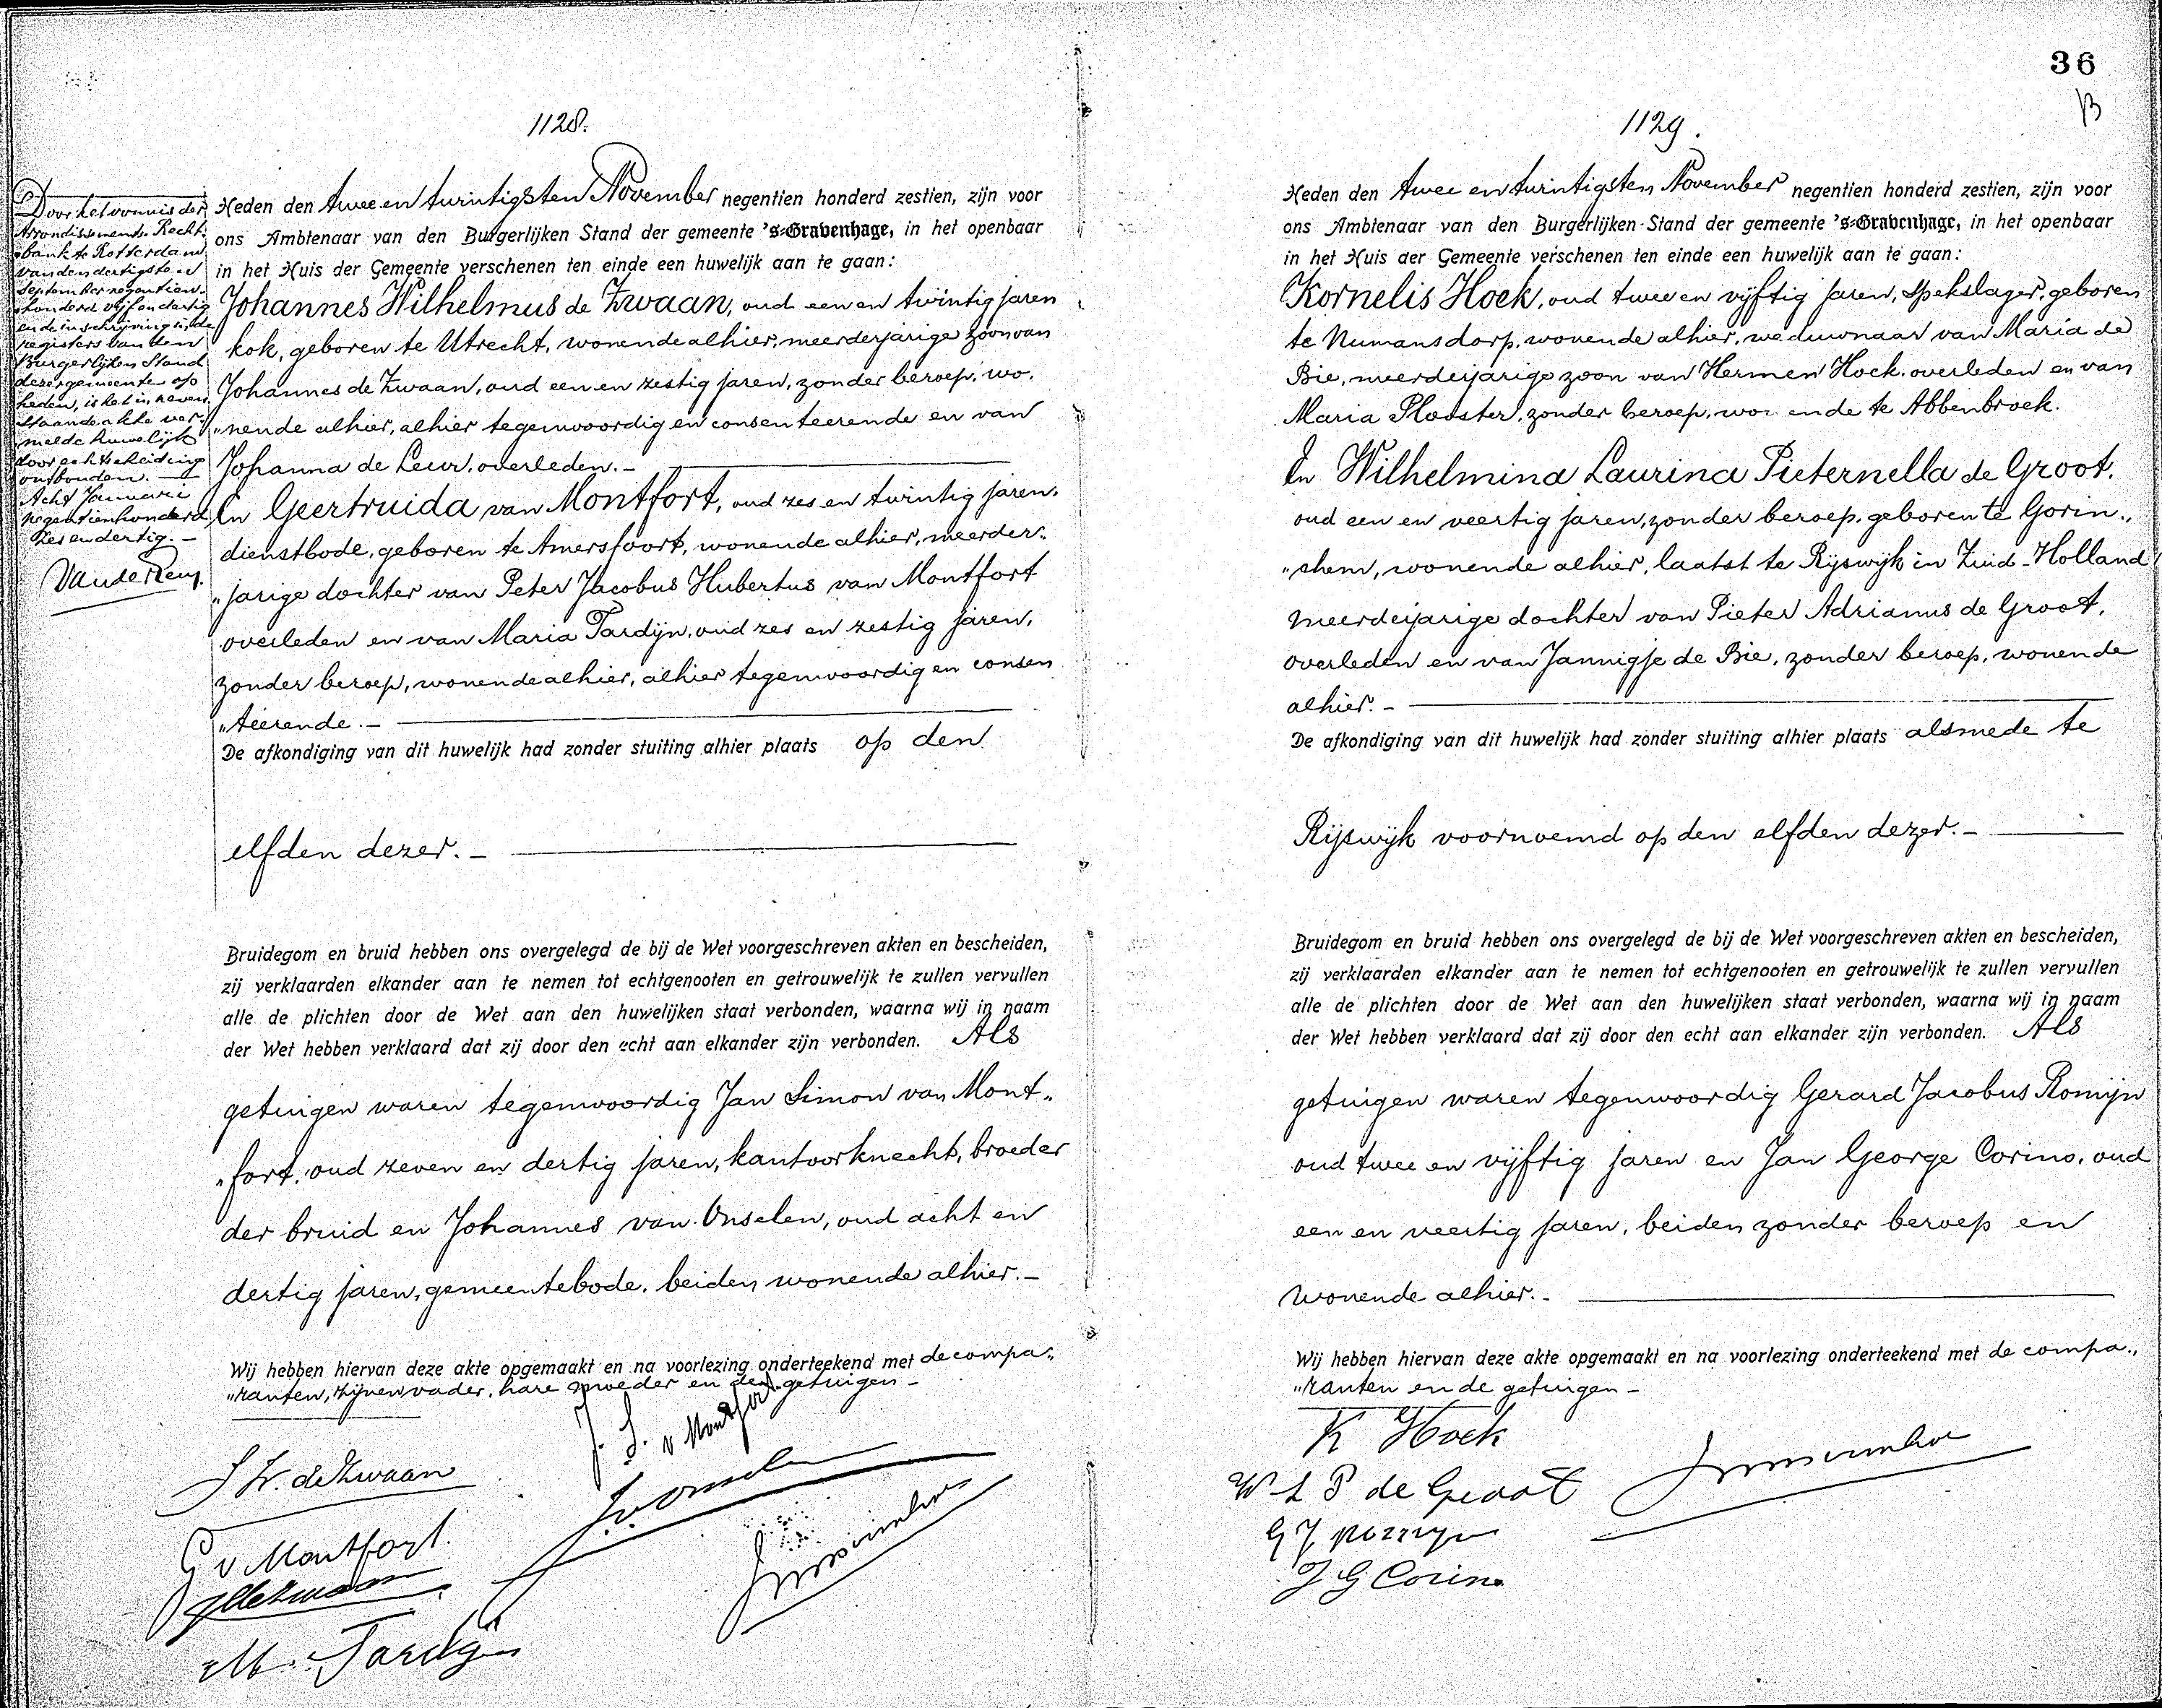 36
B
1128.
Door het vonnis der
Arrondissements-Recht-
bank te Rotterdam
van den dertigsten
September negentien-
honderd vijf en dertig
en de inschrijving in de
registers van den
Burgerlijken Stand
dezer gemeente op
heden, is het in neven-
staande akte ver-
melde huwelijk
door echtscheiding
ontbonden. —
Acht Januari
negentienhonderd
zes en dertig. —
Heden den twee en twintigsten November negentien honderd zestien, zijn voor
ons Ambtenaar van den Burgerlijken Stand der gemeente 's-Gravenhage, in het openbaar
in het Huis der Gemeente verschenen ten einde een huwelijk aan te gaan:
Johannes Wilhelmus de Zwaan, oud een en twintig jaren
kok, geboren te Utrecht, wonende alhier, meerderjarige zoon van
Johannes de Zwaan, oud een en zestig jaren, zonder beroep, wo„
„nende alhier, alhier tegenwoordig en consenteerende en van
Johanna de Leur, overleden. —
En Geertruida van Montfort, oud zes en twintig jaren,
dienstbode, geboren te Amersfoort, wonende alhier, meerder„
„jarige dochter van Peter Jacobus Hubertus van Montfort
overleden en van Maria Tardijn, oud zes en zestig jaren,
zonder beroep, wonende alhier, alhier tegenwoordig en consen
„teerende. —
De afkondiging van dit huwelijk had zonder stuiting alhier plaats op den
elfden dezer. —
Bruidegom en bruid hebben ons overgelegd de bij de Wet voorgeschreven akten en bescheiden,
zij verklaarden elkander aan te nemen tot echtgenooten en getrouwelijk te zullen vervullen
alle de plichten door de Wet aan den huwelijken staat verbonden, waarna wij in naam
der Wet hebben verklaard dat zij door den echt aan elkander zijn verbonden. Als
getuigen waren tegenwoordig Jan Simon van Mont„
„fort, oud zeven en dertig jaren, kantoorknecht, broeder
der bruid en Johannes van Onselen, oud acht en
dertig jaren, gemeentebode, beiden wonende alhier. —
Wij hebben hiervan deze akte opgemaakt en na voorlezing onderteekend met de compa„
„ranten, zijnen vader, hare moeder en de getuigen —
J. S. v Montfort
J W. de Zwaan
J. v. Onselen
G v Montfort.
J de Zwaan
M. Tardijn
1129.
Heden den twee en twintigsten November negentien honderd zestien, zijn voor
ons Ambtenaar van den Burgerlijken Stand der gemeente 's-Gravenhage, in het openbaar
in het Huis der Gemeente verschenen ten einde een huwelijk aan te gaan:
Kornelis Hoek, oud twee en vijftig jaren, spekslager, geboren
te Numansdorp, wonende alhier, weduwnaar van Maria de
Bie, meerderjarige zoon van Hermen Hoek, overleden en van
Maria Plooster, zonder beroep, wonende te Abbenbroek.
En Wilhelmina Laurina Pieternella de Groot,
oud een en veertig jaren, zonder beroep, geboren te Gorin„
„chem, wonende alhier, laatst te Rijswijk in Zuid-Holland
meerderjarige dochter van Pieter Adrianus de Groot,
overleden en van Jannigje de Bie, zonder beroep, wonende
alhier. —
De afkondiging van dit huwelijk had zonder stuiting alhier plaats alsmede te
Rijswijk voornoemd op den elfden dezer. —
Bruidegom en bruid hebben ons overgelegd de bij de Wet voorgeschreven akten en bescheiden,
zij verklaarden elkander aan te nemen tot echtgenooten en getrouwelijk te zullen vervullen
alle de plichten door de Wet aan den huwelijken staat verbonden, waarna wij in naam
der Wet hebben verklaard dat zij door den echt aan elkander zijn verbonden. Als
getuigen waren tegenwoordig Gerard Jacobus Romijn
oud twee en vijftig jaren en Jan George Corino, oud
een en veertig jaren, beiden zonder beroep en
wonende alhier. —
Wij hebben hiervan deze akte opgemaakt en na voorlezing onderteekend met de compa„
„ranten en de getuigen —
K Hoek
W L P de Groot
G J Romijn
J G Corino